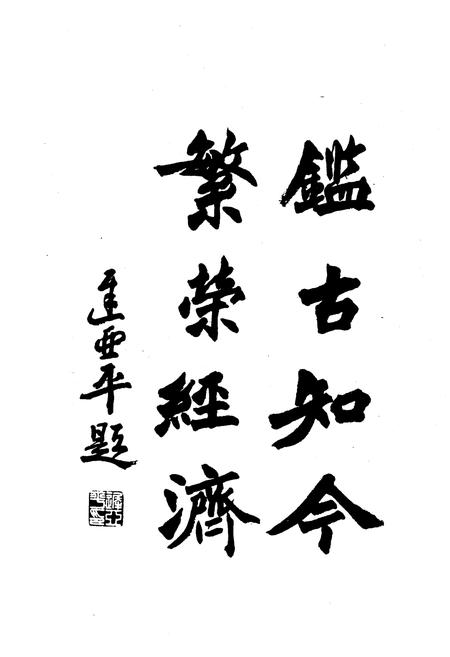 鑑古知今
繁榮經濟
遲亞平題